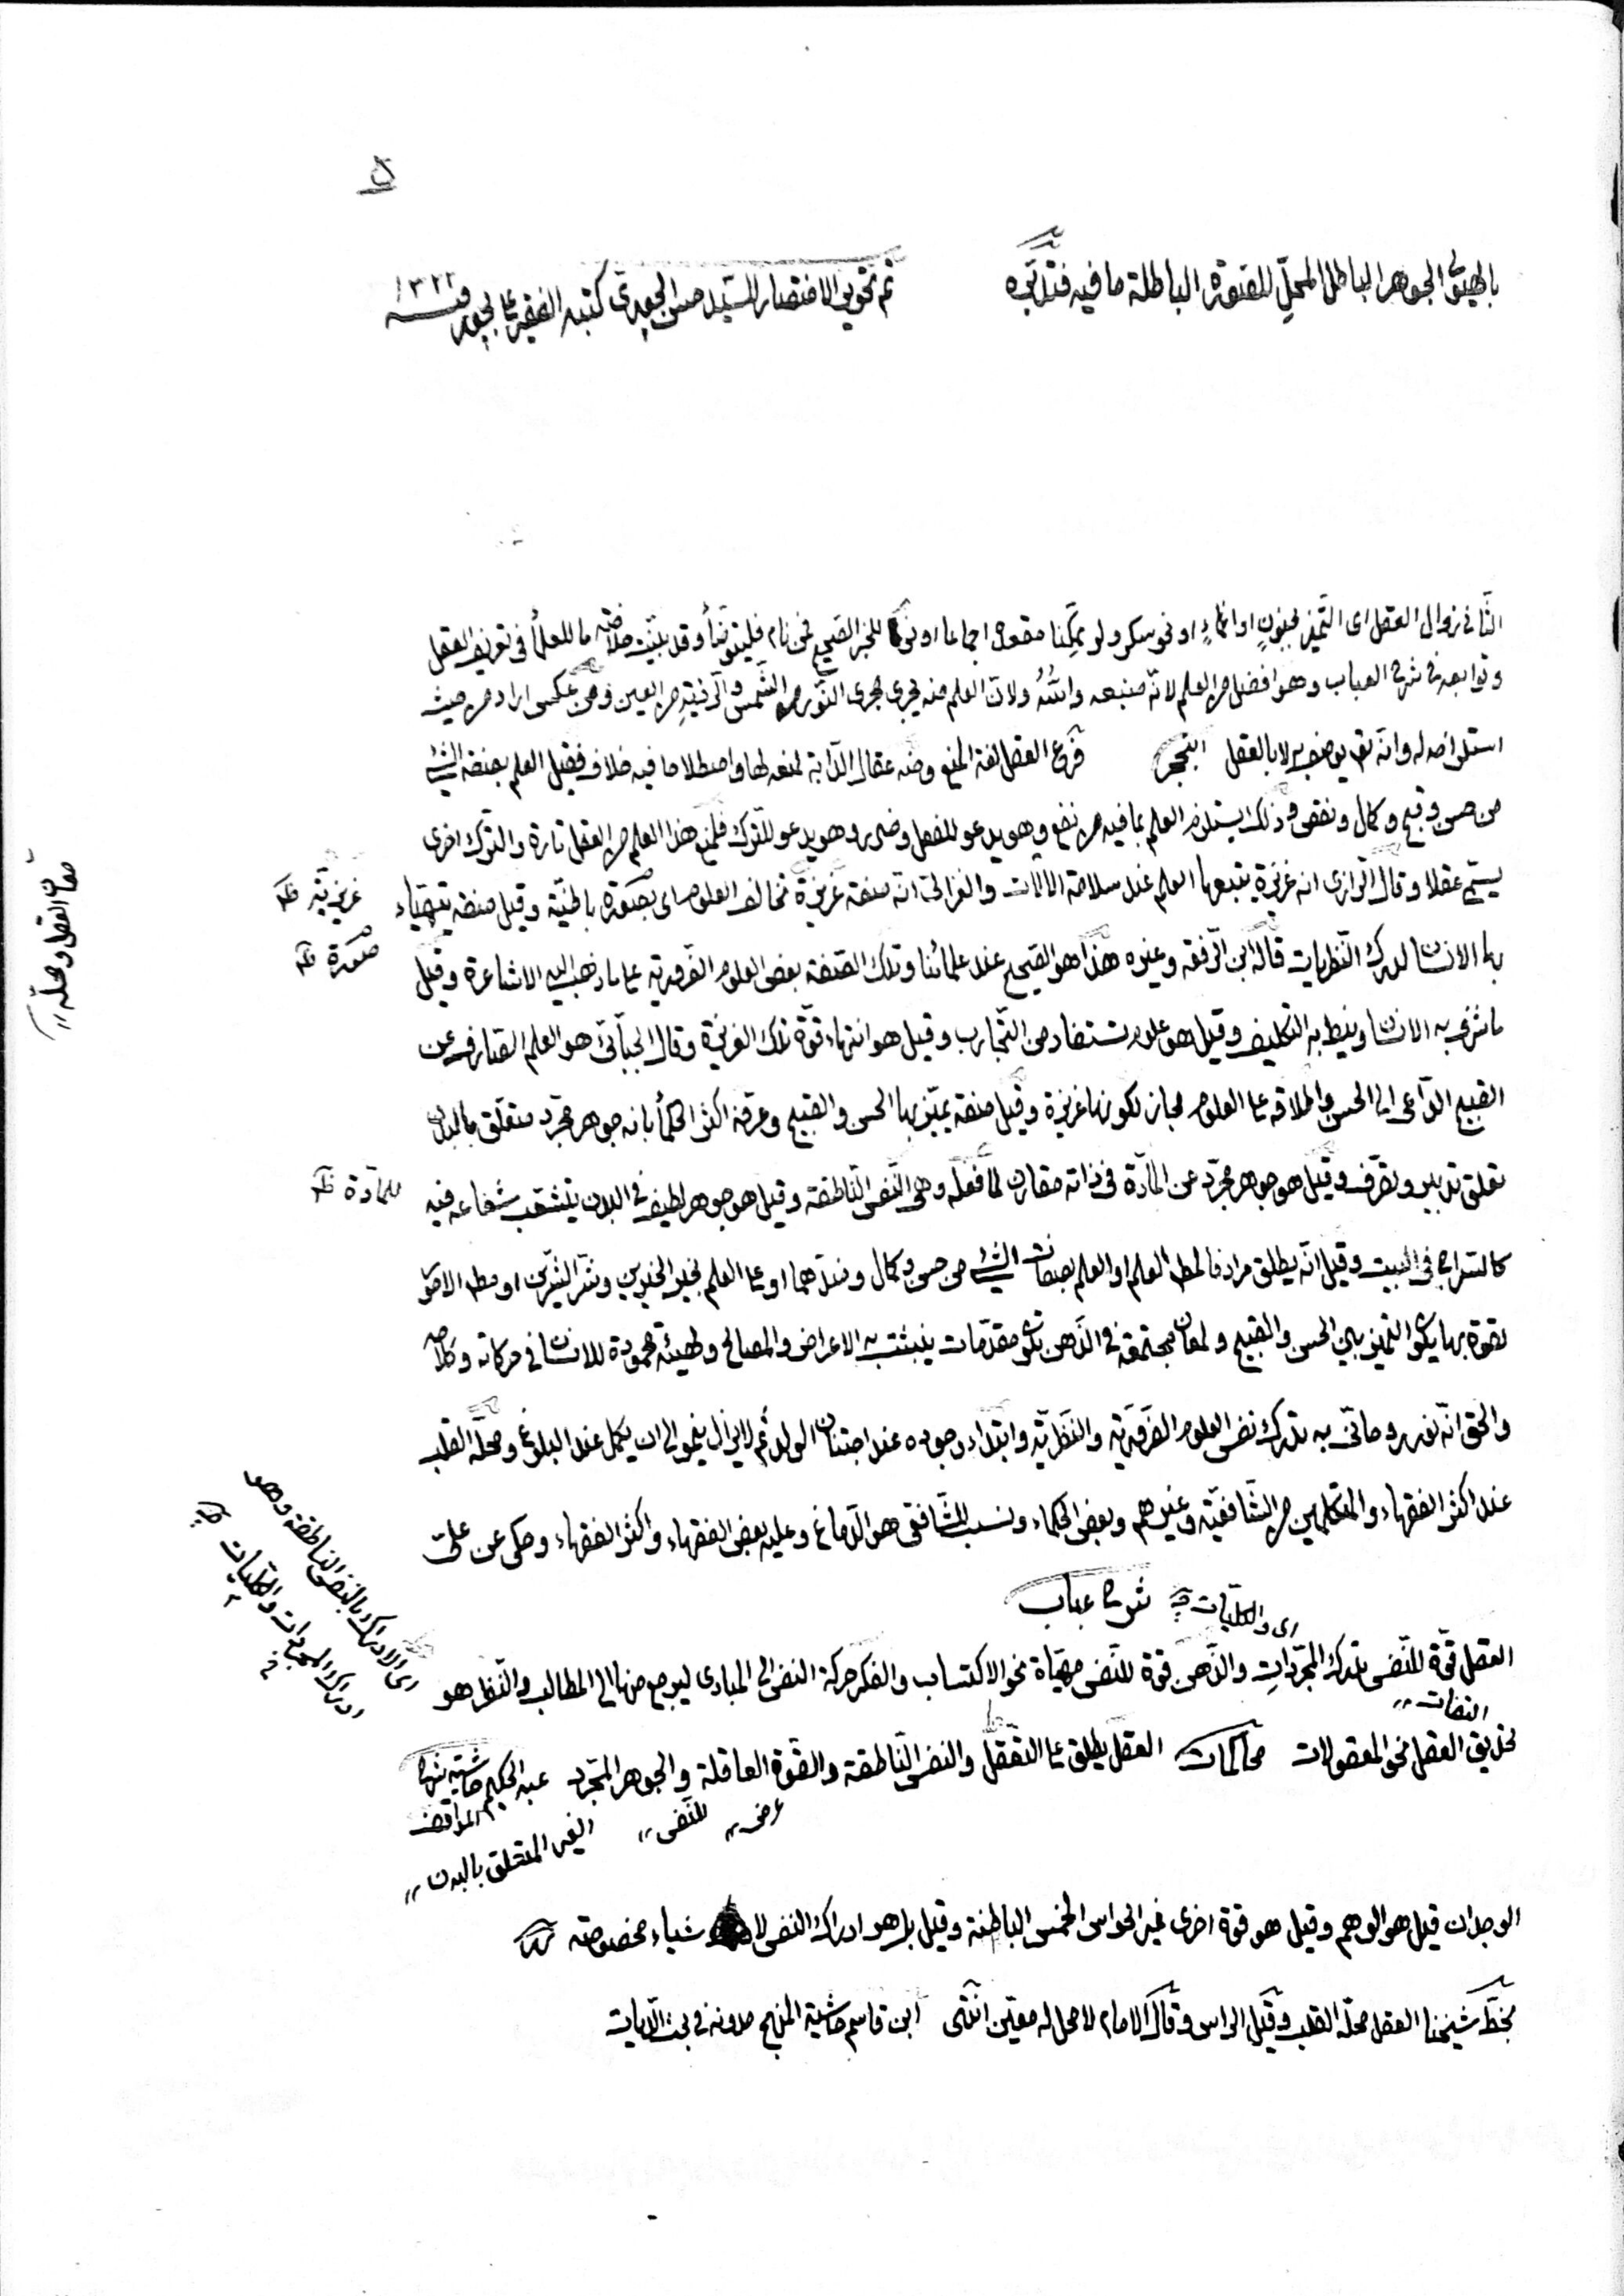 ۵
بالهيولى الجوهر الباطل المحل للصورة الباطلة ما فيه فتدبره
تم تحويل الاختصار للسيد حسن الجوري كتبه الفقير على ١٣٢٢
الثاني زوال العقل اى التميز بجنون او اغماء او نحو سكر ولو ممكنا مقعده اجماعا او نوم للخبر الصحيح فمن نام فليتوضأ وقد بينت خلاصة ما للعلماء في تعريف العقل
وتوابعه في شرح العباب وهو افضل من العلم لانه منبعه واسه ولان العلم منه يجرى مجرى النور من الشمس والرؤية من العين ومن عكس اراد من حيث
استلزامه له وانه تعالى يوصف به لا بالعقل التحفة
فرع العقل لغة المنع ومنه عقال الدابة لمنعه لها واصطلاحا فيه خلاف فقيل العلم بصفة الشئ
من حسن وقبح وكمال ونقص وذلك يستلزم العلم بما فيه من نفع وهو يدعو للفعل وضرر وهو يدعو للترك فلمنع هذا العلم من الفعل تارة والترك اخرى
يسمى عقلا وقال الرازى انه غريزة يتبعها العلم عند سلامة الالات والغزالى انه صفة غريزة تخالف العلوم اى بصورة باطنية وقيل صفة يتهياء
غريزية ظ
صورة ظ
بها الانسان لدرك النظريات قاله ابن الرفعة وغيره هذا هو الصحيح عند علمائنا وتلك الصفة بعض العلوم الضرورية على ما ذهب اليه الاشاعرة وقيل
ما شرف به الانسان وينيط به التكليف وقيل هو علوم تستفاد من التجارب وقيل هو انتهاء قوة تلك الغريزة وقال الجبائى هو العلم الصارف عن
القبيح الداعى الى الحسن واطلاقه على العلوم مجاز لكونها غريزة وقيل صفة يميز بها الحسن والقبيح وعرفه اكثر الحكماء بانه جوهر مجرد متعلق بالبدن
تعلق تدبير وتصرف وقيل هو جوهر مجرد عن المادة في ذاته مقارن لها في فعله وهى النفس الناطقة وقيل هو جوهر لطيف في البدن يتشعب شعاعه فيه
للمادة ظ
كالسراج في البيت وقيل انه يطلق مرادفا لمطلق العلم او العلم بصفات الشئ من حسن وكمال وضدهما او على العلم بخير الخيرين وشر الشرين او مطلق الامور
لقوة بها يكون التميز بين الحسن والقبيح ولمعان مجتمعة في الذهن تكون مقدمات يتثبت بها الاغراض والمصالح ولهيئة محمودة للانسان في حركاته وكلامه
والحق انه نور روحانى به تدرك نفس العلوم الضرورية والنظرية وابتداء وجوده عند اجتنان الولد ثم لا يزال ينمو الى ان يكمل عند البلوغ ومحله القلب
عند اكثر الفقهاء والمتكلمين من الشافعية وغيرهم وبعض الحكماء ونسب للشافعى هو الدماغ وعليه بعض الفقهاء واكثر الفقهاء وحكى عن على
شرح عباب
اى والكليات
العقل قوة للنفس تدرك المجردات والذهن قوة للنفس مهيأة نحو الاكتساب والفكر حركة النفس الى المبادى ليرجع منها الى المطالب والنظر هو
التفات
اى الادراك بالنفس الناطقة وهو
ادراك المجردات والكليات
تحديق العقل نحو المعقولات محاكمات
العقل يطلق على التعقل والنفس الناطقة والقوة العاقلة والجوهر المجرد عبد الحكيم حاشية شرح
المواقف
عرض
للنفس
الغير المتعلق بالبدن
الوجدان قيل هو الوهم وقيل هو قوة اخرى غير الحواس الخمس الباطنة وقيل بل هو ادراك النفس لاشياء مخصوصة
بخط شيخنا العقل محله القلب وقيل الراس وقال الامام لا محل له معين انتهى ابن قاسم حاشية المنهج مدونة في بحث الديات
معان العقل ومحله